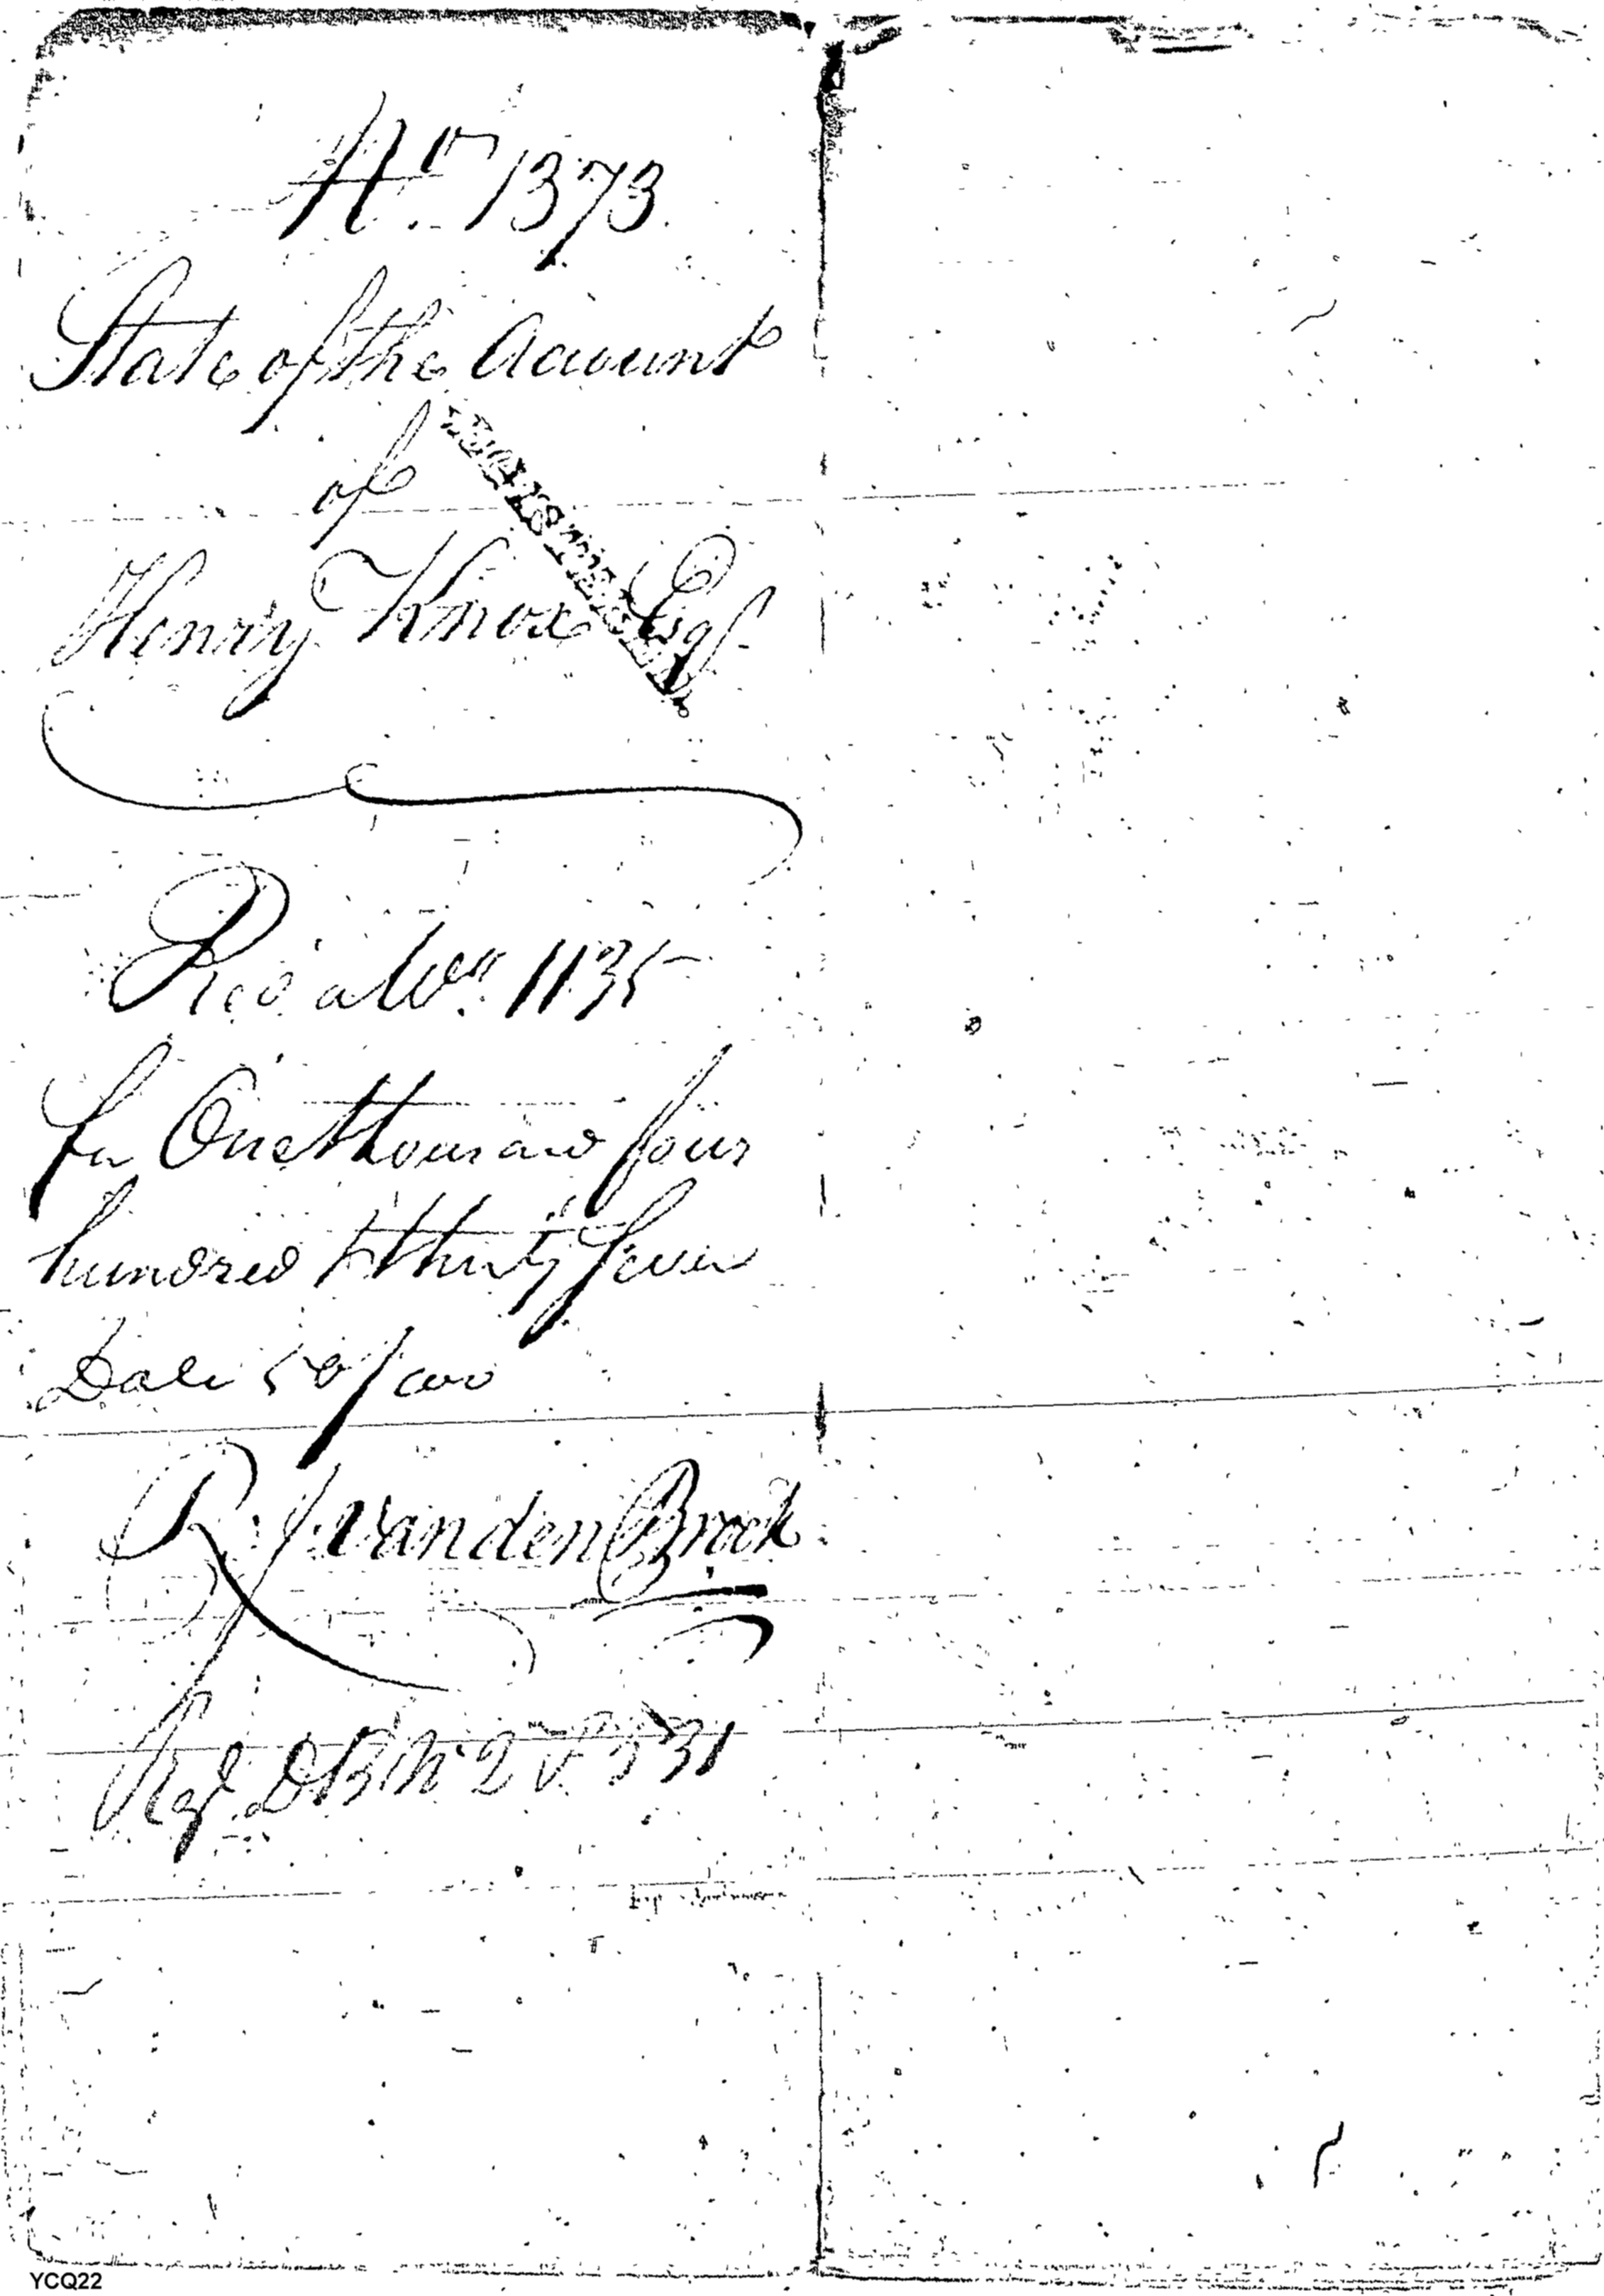 No. 1373.
State of the Account
of
Henry Knox Esqr
Recd a Wt. 1135
for One thousand four
hundred & thirty seven
Doll: 50/100
R. J. Vanden Broek
Regd. D B No 2 P. 331
YCQ22